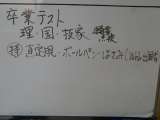 卒業テスト
理・国・技家
持 直定規・ボールペン・はさみ